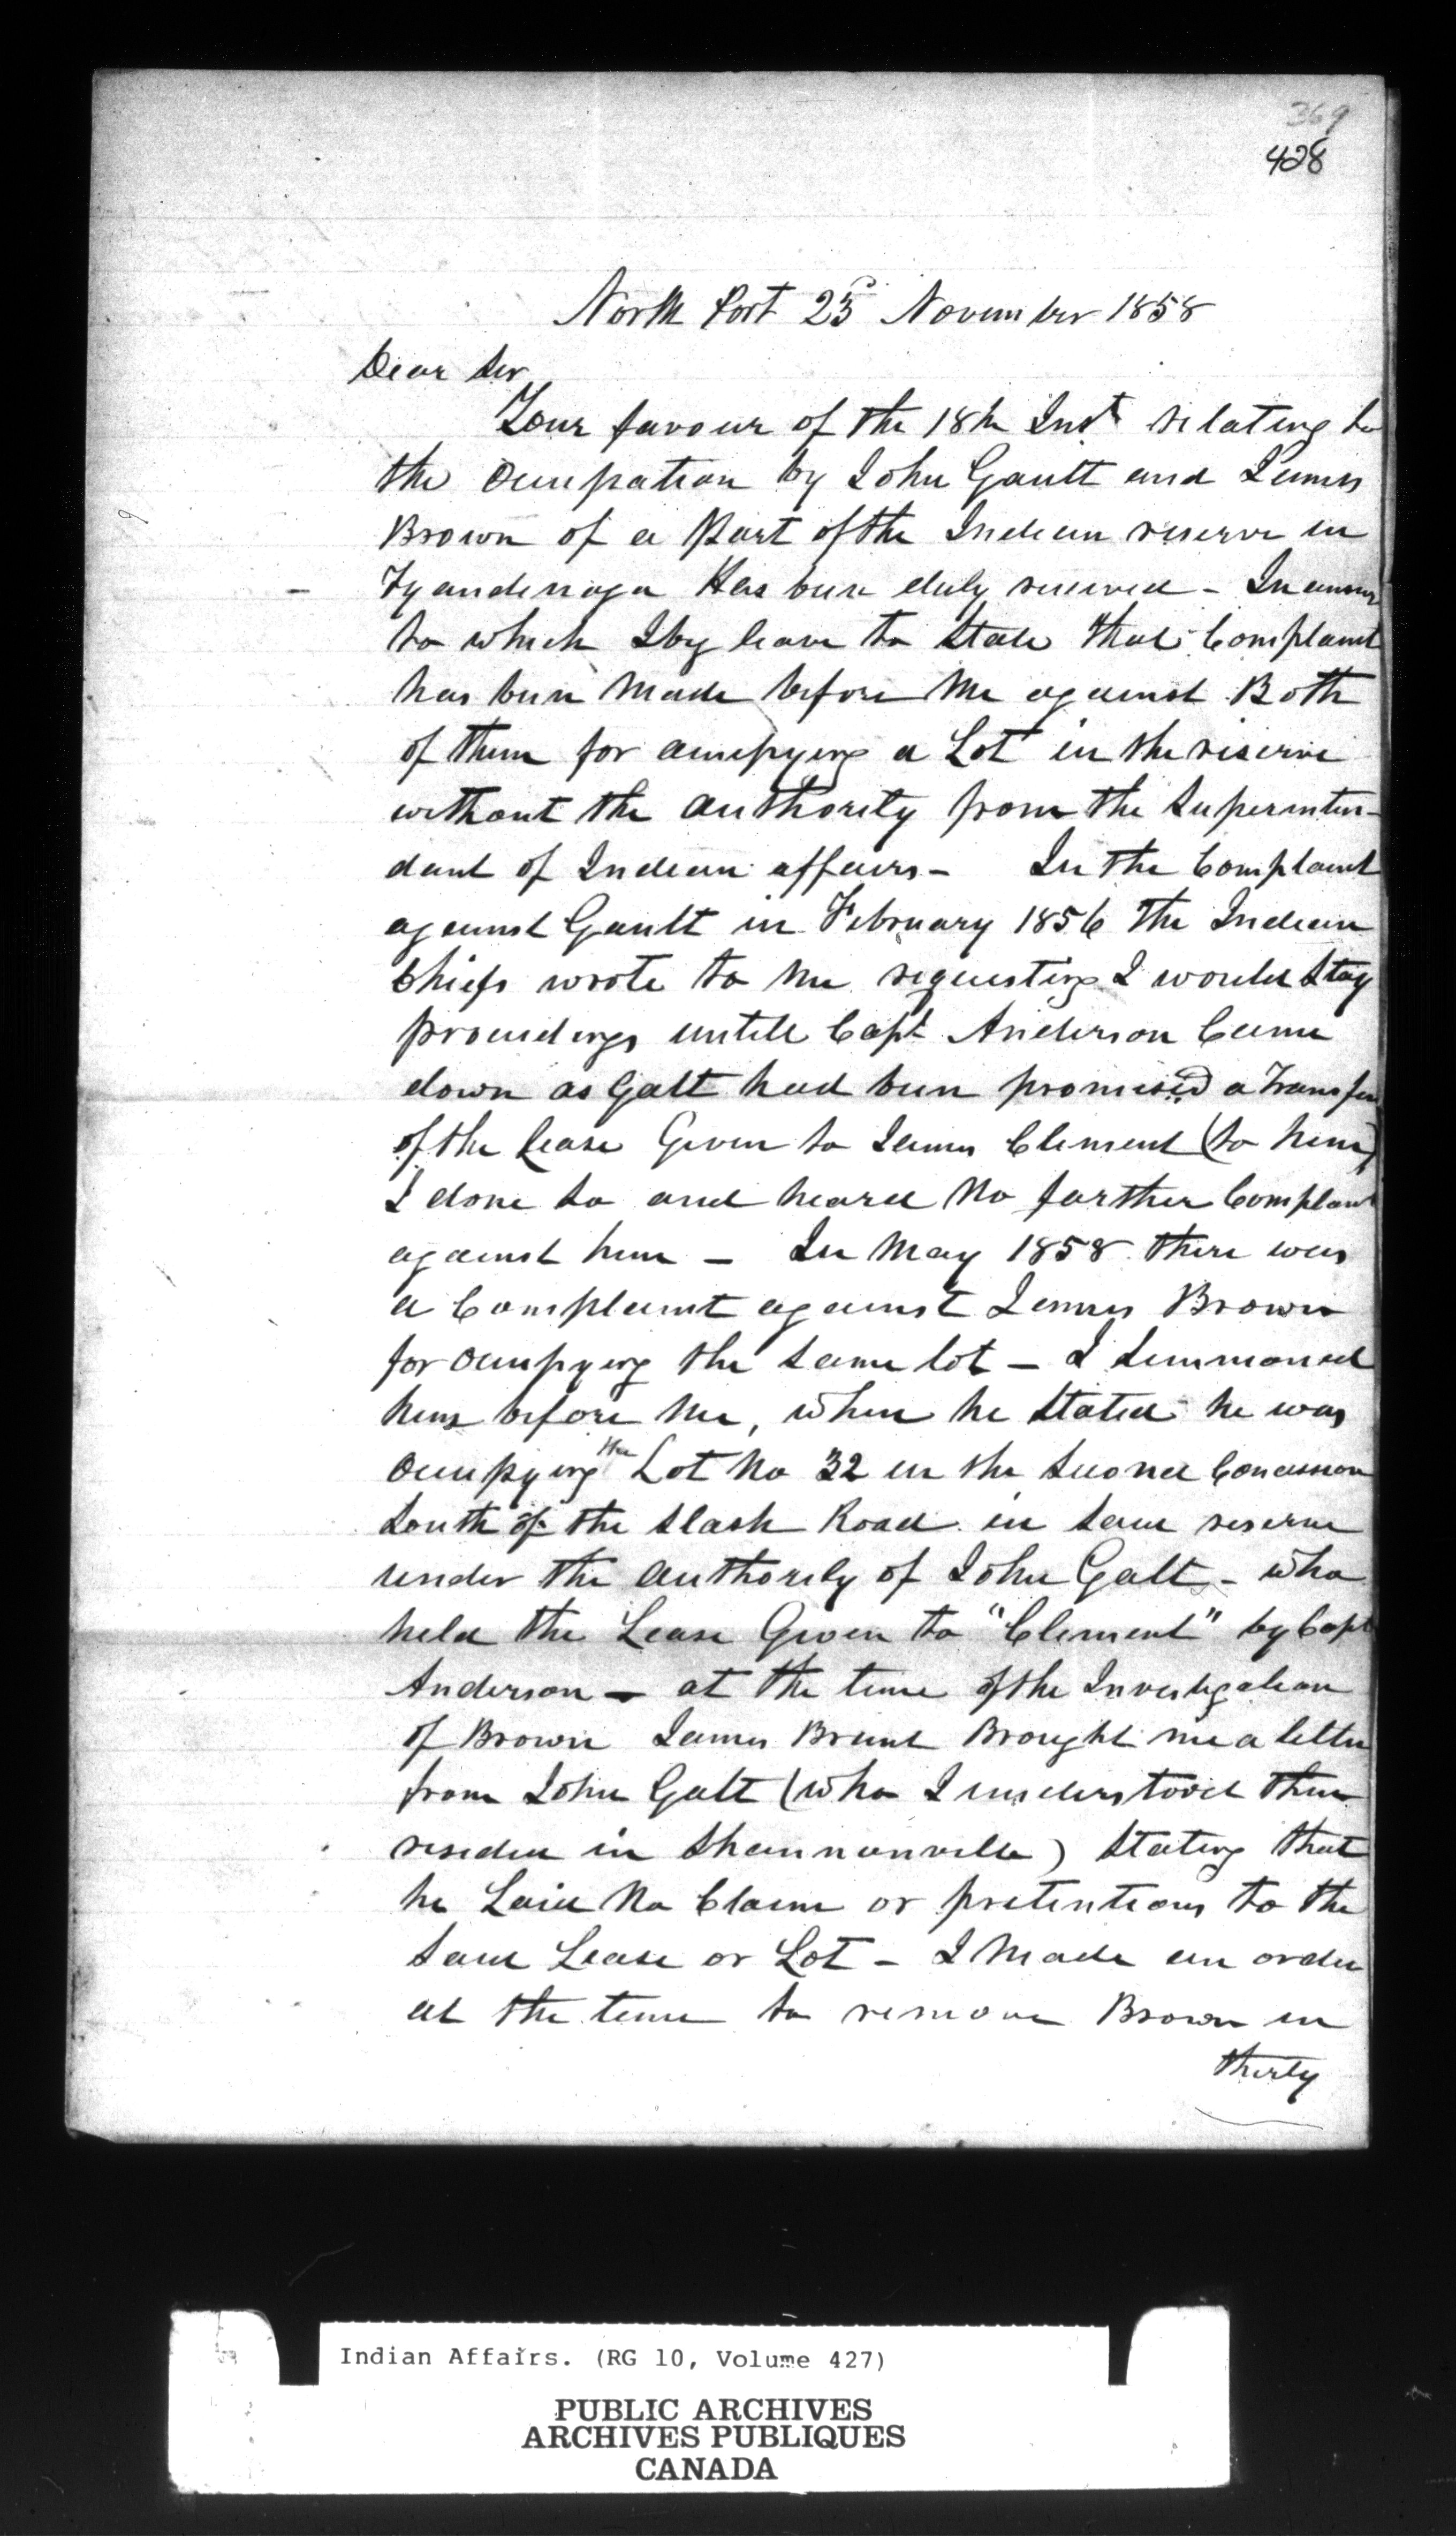 369
428
North Port 23d November 1858
Dear Sir
Your favour of the 18th Inst relating to
the Occupation by John Gault and James
Brown of a Part of the Indian reserve in
Tyandenaga Has been duly received - In answer
to which I beg leave to State that Complaint
has been Made before Me against Both
of them for occupying a Lot in the reserve
without the authority from the Superinten-
dant of Indian affairs - In the Complaint
against Gault in February 1856 The Indian
Chiefs wrote to me requesting I would Stay
proceedings untill Capt Anderson Came
down as Galt had been promised a Transfer
of the Lease Given to James Clement (to him)
I done so and heard No further Complaint
against him - In May 1858 there was
a Complaint against James Brown
for Occupying the same lot - I Summoned
him before Me, when he Stated he was
Occupying the Lot No 32 in the Second Concession
South of the Slash Road in said reserve
under the authority of John Galt - who
held the Lease Given to "Clement" by Capt
Anderson - at the time of the Investigation
of Brown James Brant Brought me a letter
from John Galt (who I understood then
resided in Shannonville) Stating that
he Laid No Claim or pretentions to the
said Lease or Lot - I Made an order
at the time to remove Brown in
thirty
Indian Affairs. (RG 10, Volume 427)
PUBLIC ARCHIVES
ARCHIVES PUBLIQUES
CANADA